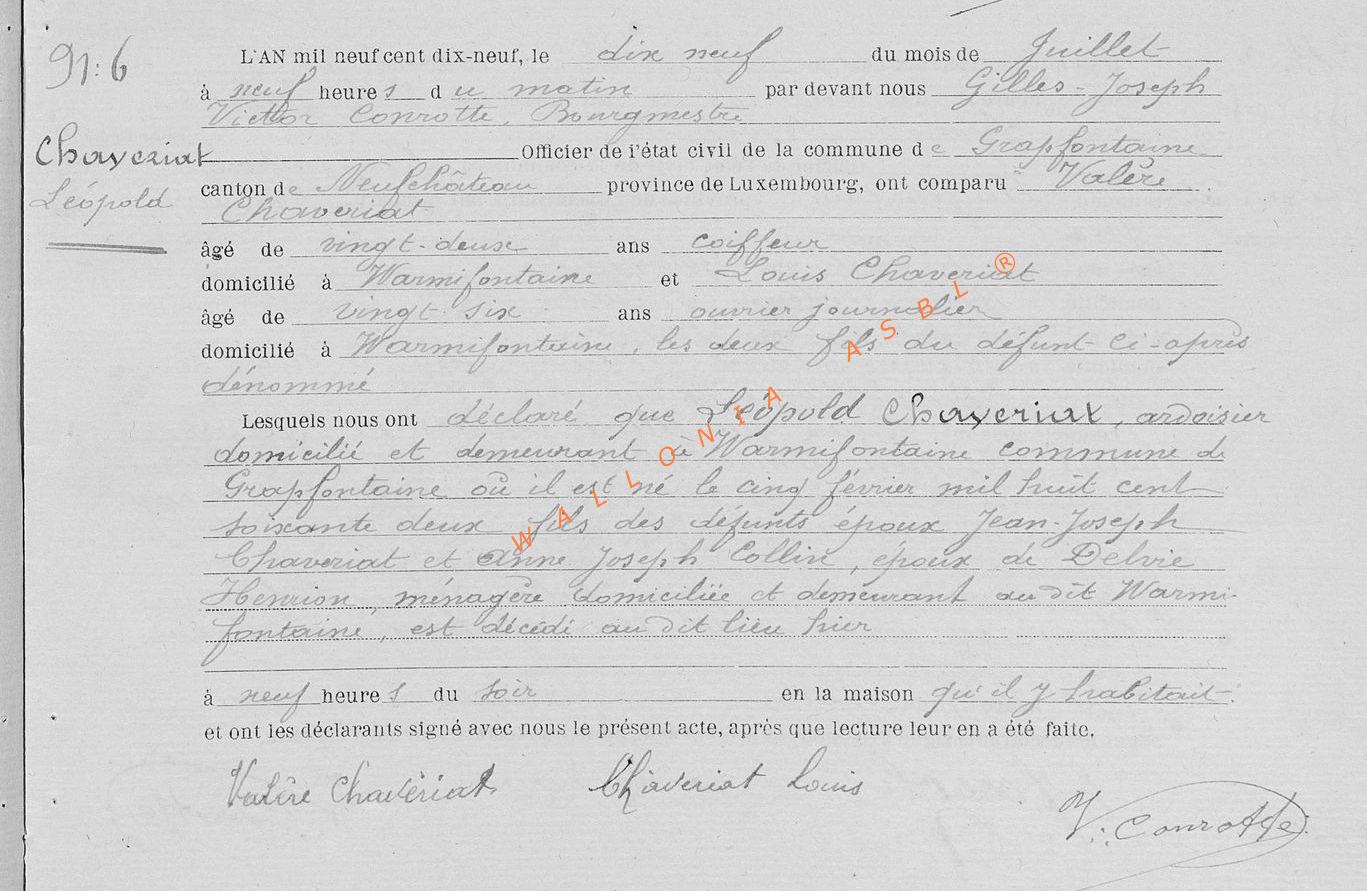 N: 6
Chaveriat
Léopold
L'AN mil neuf cent dix-neuf, le dix neuf du mois de Juillet
à neuf heures du matin par devant nous Gilles-Joseph
Victor Conrotte, Bourgmestre
Officier de l'état civil de la commune de Grapfontaine
canton de Neufchâteau province de Luxembourg, ont comparu Valère
Chaveriat
âgé de vingt-deux ans coiffeur
domicilié à Warmifontaine et Louis Chaveriat
âgé de vingt six ans ouvrier journalier
domicilié à Warmifontaine, les deux fils du défunt ci-après
dénommé
Lesquels nous ont déclaré que Léopold Chaveriat, ardoisier
domicilié et demeurant à Warmifontaine commune de
Grapfontaine où il est né le cinq février mil huit cent
soixante deux fils des défunts époux Jean-Joseph
Chaveriat et Anne Joseph Collin, époux de Delvie
Henrion, ménagère domiciliée et demeurant au dit Warmi-
fontaine, est décédé au dit lieu hier
à neuf heures du soir en la maison qu'il y habitait.
et ont les déclarants signé avec nous le présent acte, après que lecture leur en a été faite.
Valère Chavériat Chaveriat Louis
V. Conrotte
WALLONIA ASBL ®